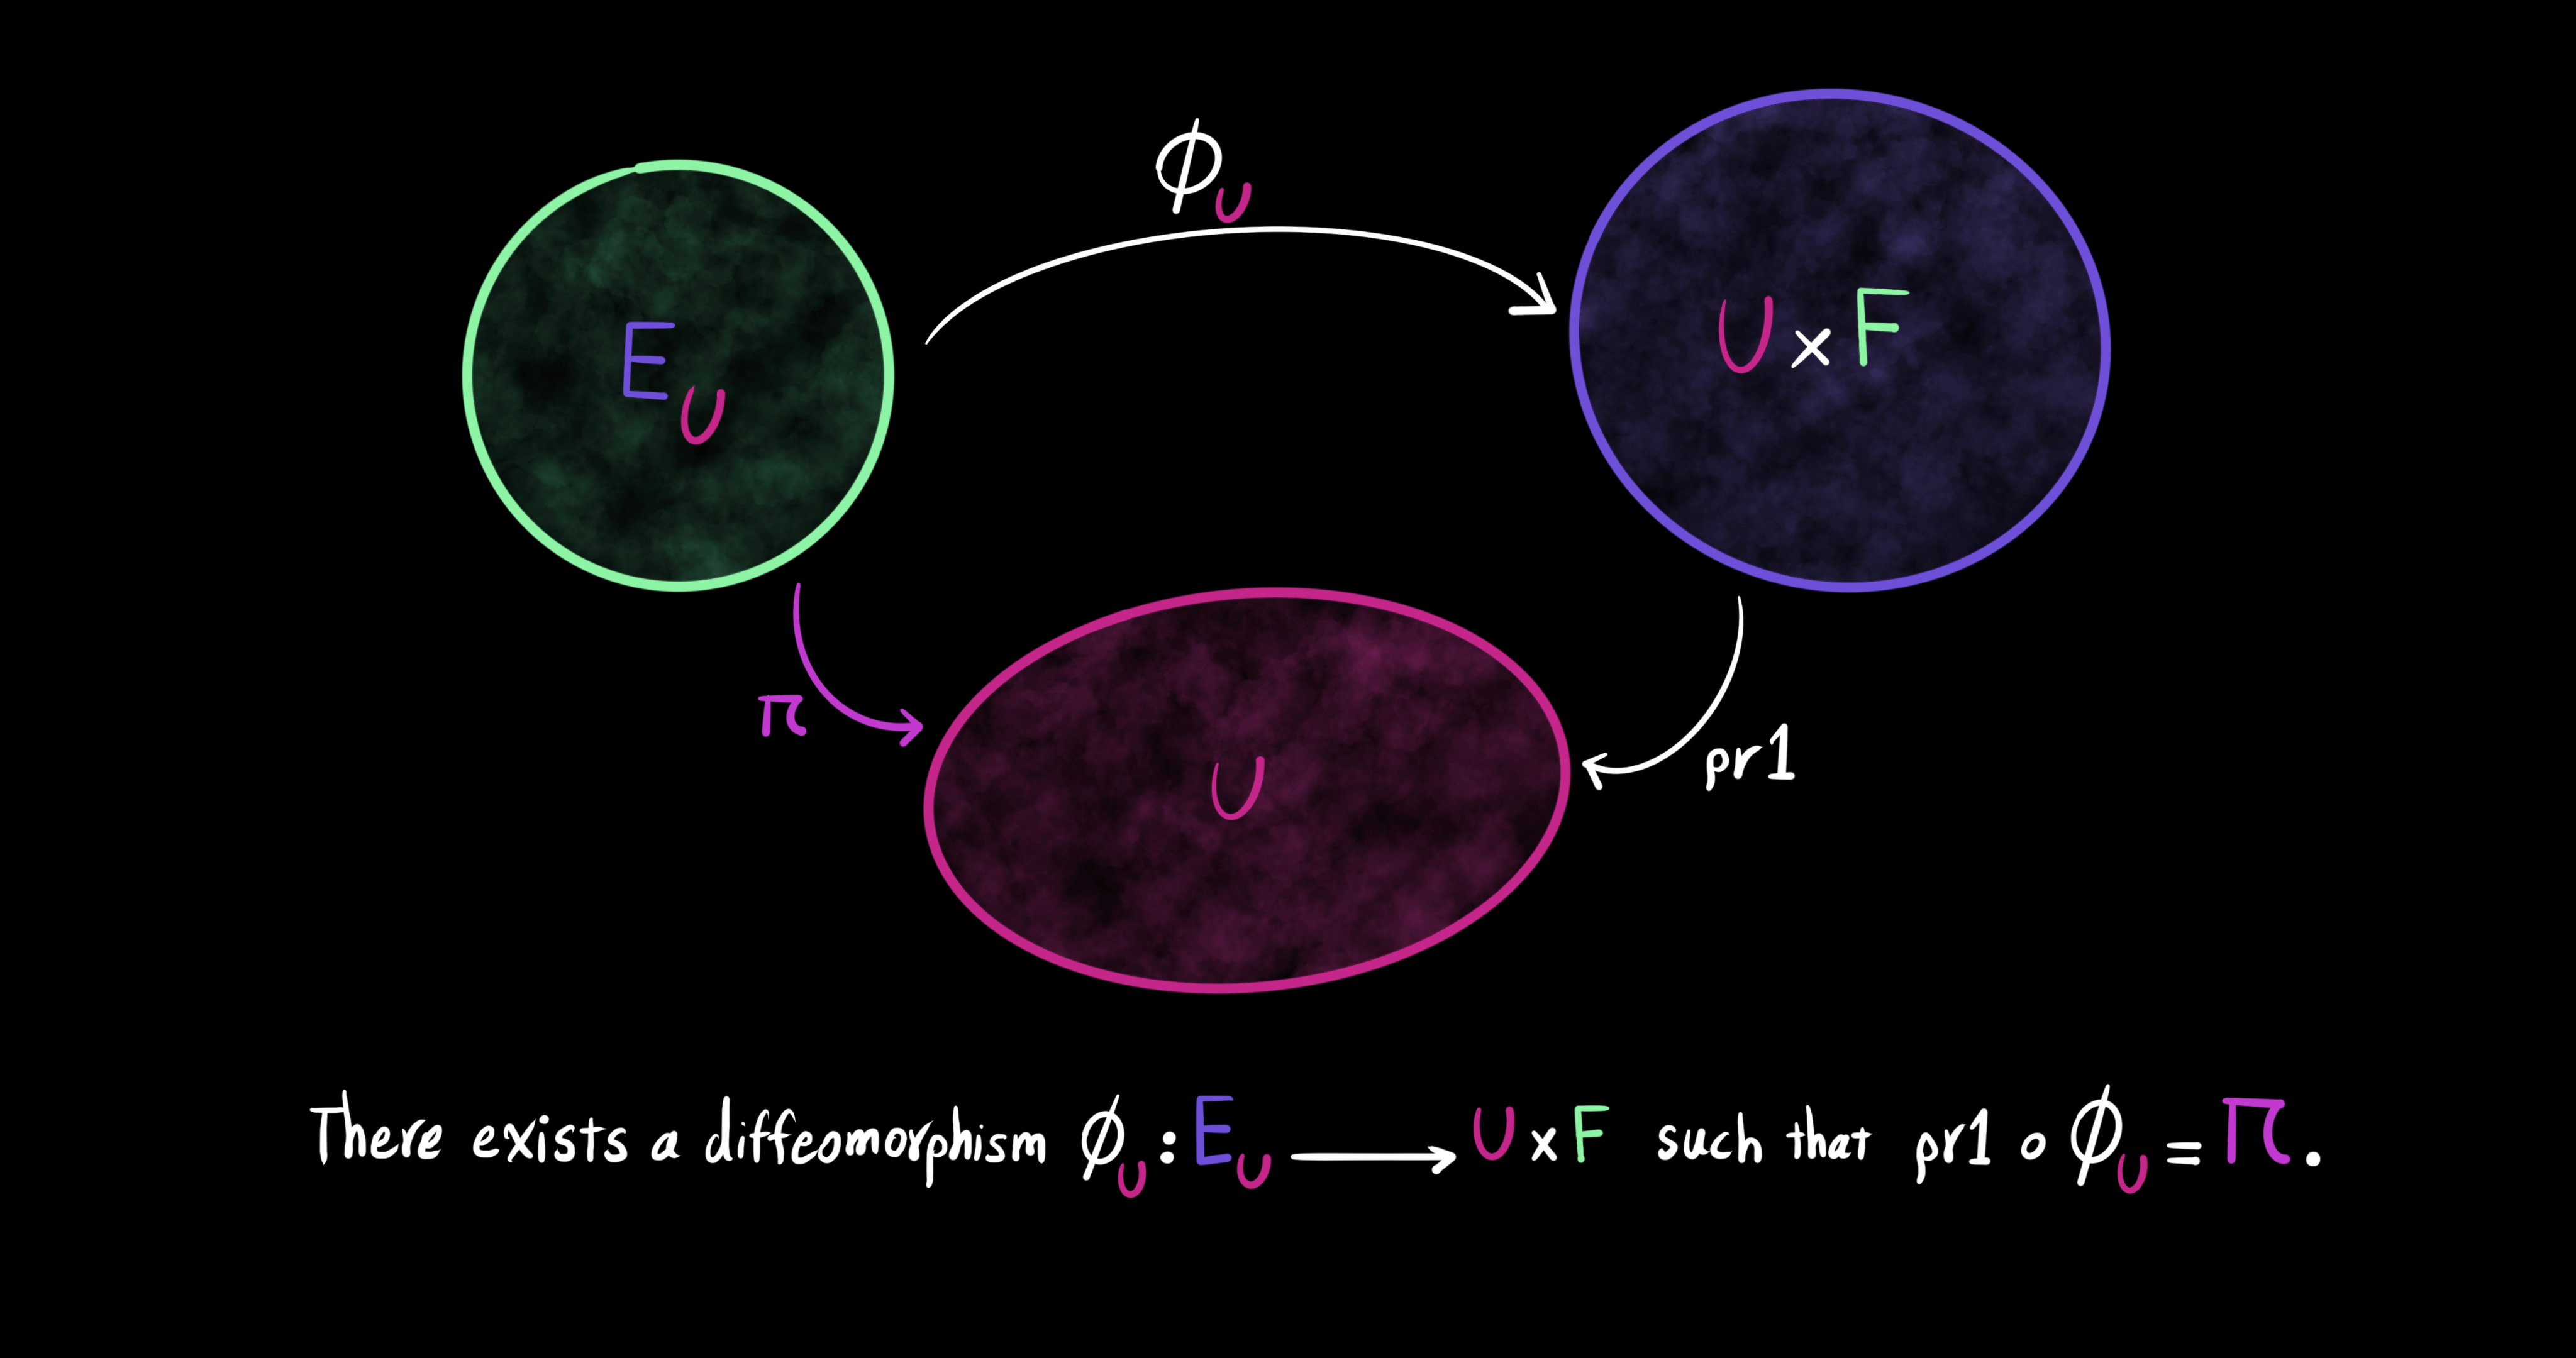 ϕ_U
E_U
U × F
π
U
pr1
There exists a diffeomorphism ϕ_U : E_U ⟶ U × F such that pr1 ∘ ϕ_U = π.